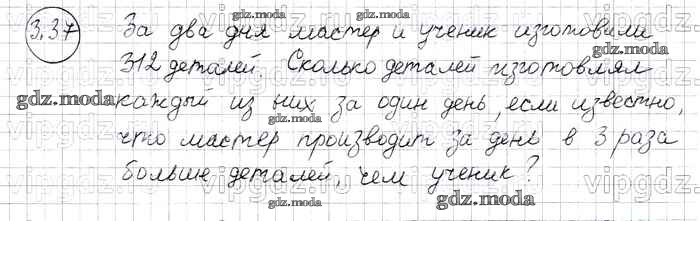 3.37 За два дня мастер и ученик изготовили
312 деталей. Сколько деталей изготовлял
каждый из них за один день, если известно,
что мастер производит за день в 3 раза
больше деталей, чем ученик?
gdz.moda
gdz.moda
gdz.moda
gdz.moda
gdz.moda
gdz.moda
gdz.moda
gdz.moda
vipgdz.ru
vipgdz.ru
vipgdz.ru
vipgdz.ru